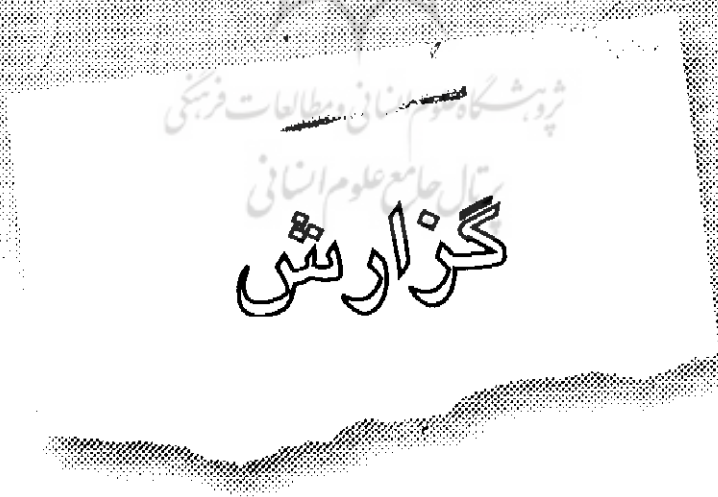 پژوهشگاه علوم انسانی و مطالعات فرهنگی
پرتال جامع علوم انسانی
گزارش